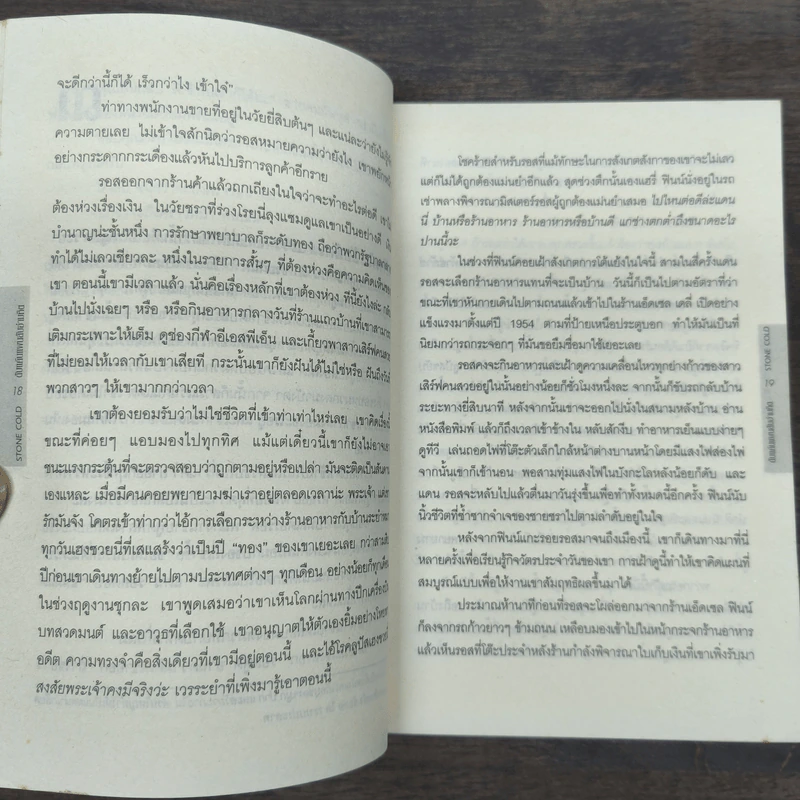 จะดีกว่านี้ก็ได้ เร็วกว่าไง เข้าใจ๋"
ท่าทางพนักงานขายที่อยู่ในวัยยี่สิบต้นๆ และแน่ละว่ายังไม่
ความตายเลย ไม่เข้าใจสักนิดว่ารอสหมายความว่ายังไง เขาพยัก
อย่างกระดากกระเดื่องแล้วหันไปบริการลูกค้าอีกราย
รอสออกจากร้านค้าแล้วถกเถียงในใจว่าจะทำอะไรต่อดี
ต้องห่วงเรื่องเงิน ในวัยชราที่ร่วงโรยนี่ลุงแซมดูแลเขาเป็นอย่างดี
บำนาญน่ะชั้นหนึ่ง การรักษาพยาบาลก็ระดับทอง ถือว่าพวกรัฐบาล
ทำได้ไม่เลวเชียวละ หนึ่งในรายการสั้นๆ ที่ต้องห่วงคือความคิด
เขา ตอนนี้เขามีเวลาแล้ว นั่นคือเรื่องหลักที่เขาต้องห่วง ทีนี้ยังไงล่ะ
บ้านไปนั่งเฉยๆ หรือ หรือกินอาหารกลางวันที่ร้านแถวบ้านที่เขา
เติมกระเพาะให้เต็ม ดูช่องกีฬาอีเอสพีเอ็น และเกี้ยวพาสาวเสิร์ฟ
ที่ไม่ยอมให้เวลากับเขาเสียที กระนั้นเขาก็ยังฝันได้ไม่ใช่หรือ
พวกสาวๆ ให้เขามากกว่าเวลา
เขาต้องยอมรับว่าไม่ใช่ชีวิตที่เข้าท่าเท่าไหร่เลย เขาคิด
ขณะที่ค่อยๆ แอบมองไปทุกทิศ แม้แต่เดี๋ยวนี้เขาก็ยังไม่อาจ
ชนะแรงกระตุ้นที่จะตรวจสอบว่าถูกตามอยู่หรือเปล่า มันจะติดเป็น
เองแหละ เมื่อมีคนคอยพยายามฆ่าเราอยู่ตลอดเวลาน่ะ พระเจ้า
รักมันจัง โคตรเข้าท่ากว่าไอ้การเลือกระหว่างร้านอาหารกับบ้าน
ทุกวันเฮงซวยนี่ที่เสแสร้งว่าเป็นปี "ทอง" ของเขาเยอะเลย กว่าสาม
ปีก่อนเขาเดินทางย้ายไปตามประเทศต่างๆ ทุกเดือน อย่างน้อยก็ทุกเดือน
ในช่วงฤดูงานชุกละ เขาพูดเสมอว่าเขาเห็นโลกผ่านทางปีกเครื่องบิน
บทสวดมนต์ และอาวุธที่เลือกใช้ เขาอนุญาตให้ตัวเองยิ้มอย่าง
อดีต ความทรงจำคือสิ่งเดียวที่เขามีอยู่ตอนนี้ และไอ้โรคลูปัส
สงสัยพระเจ้าคงมีจริงว่ะ เวรระยำที่เพิ่งมารู้เอาตอนนี้
18
STONE COLD
โชคร้ายสำหรับรอสที่แม้ทักษะในการสังเกตสังกาของเขาจะไม่เลว
แต่ก็ไม่ได้ถูกต้องแม่นยำอีกแล้ว สุดช่วงตึกนั้นเองแฮรี่ ฟินน์นั่งอยู่ในรถ
เช่าพลางพิจารณามิสเตอร์รอสผู้ถูกต้องแม่นยำเสมอ ไปไหนต่อดีล่ะแดน
นี่ บ้านหรือร้านอาหาร ร้านอาหารหรือบ้านดี แก่ช่างตกต่ำถึงขนาดอะไร
ปานนี้วะ
ในช่วงที่ฟินน์คอยเฝ้าสังเกตการโต้แย้งในใจนี้ สามในสี่ครั้งแดน
รอสจะเลือกร้านอาหารแทนที่จะเป็นบ้าน วันนี้ก็เป็นไปตามอัตราที่ว่า
ขณะที่เขาหันกายเดินไปตามถนนแล้วเข้าไปในร้านเอ็ดเซล เดลี่ เปิดอย่าง
แข็งแรงมาตั้งแต่ปี 1954 ตามที่ป้ายเหนือประตูบอก ทำให้มันเป็นที่
นิยมกว่ารถกระจอก ที่มันขอยืมชื่อมาใช้เยอะเลย
รอสคงจะกินอาหารและเฝ้าดูความเคลื่อนไหวทุกย่างก้าวของสาว
เสิร์ฟคนสวยอยู่ในนั้นอย่างน้อยก็ชั่วโมงหนึ่งละ จากนั้นก็ขับรถกลับบ้าน
ระยะทางยี่สิบนาที หลังจากนั้นเขาจะออกไปนั่งในสนามหลังบ้าน อ่าน
หนังสือพิมพ์ แล้วก็ถึงเวลาเข้าข้างใน หลับสักงีบ ทำอาหารเย็นแบบง่ายๆ
ดูทีวี เล่นถอดไพ่ที่โต๊ะตัวเล็กใกล้หน้าต่างบานหน้าโดยมีแสงไฟส่องไพ่
จากนั้นก็เข้านอน พอสามทุ่มแสงไฟในบังกะโลหลังน้อยก็ดับ และ
แดน รอสจะหลับไปแล้วตื่นมาวันรุ่งขึ้นเพื่อทำทั้งหมดนี้อีกครั้ง ฟินน์นับ
นิ้วชีวิตที่ซ้ำซากจำเจของชายชราไปตามลำดับอยู่ในใจ
หลังจากฟินน์แกะรอยรอสมาจนถึงเมืองนี้ เขาก็เดินทางมาที่นี่
หลายครั้งเพื่อเรียนรู้กิจวัตรประจำวันของเขา การเฝ้าดูนี้ทำให้เขาคิดแผนที่
สมบูรณ์แบบเพื่อให้งานเขาสัมฤทธิผลขึ้นมาได้
ประมาณห้านาทีก่อนที่รอสจะโผล่ออกมาจากร้านเอ็ดเซล ฟินน์
ก็ลงจากรถก้าวยาวๆ ข้ามถนน เหลือบมองเข้าไปในหน้ากระจกร้านอาหาร
แล้วเห็นรอสที่โต๊ะประจำหลังร้านกำลังพิจารณาใบเก็บเงินที่เขาเพิ่งรับมา
STONE COLD